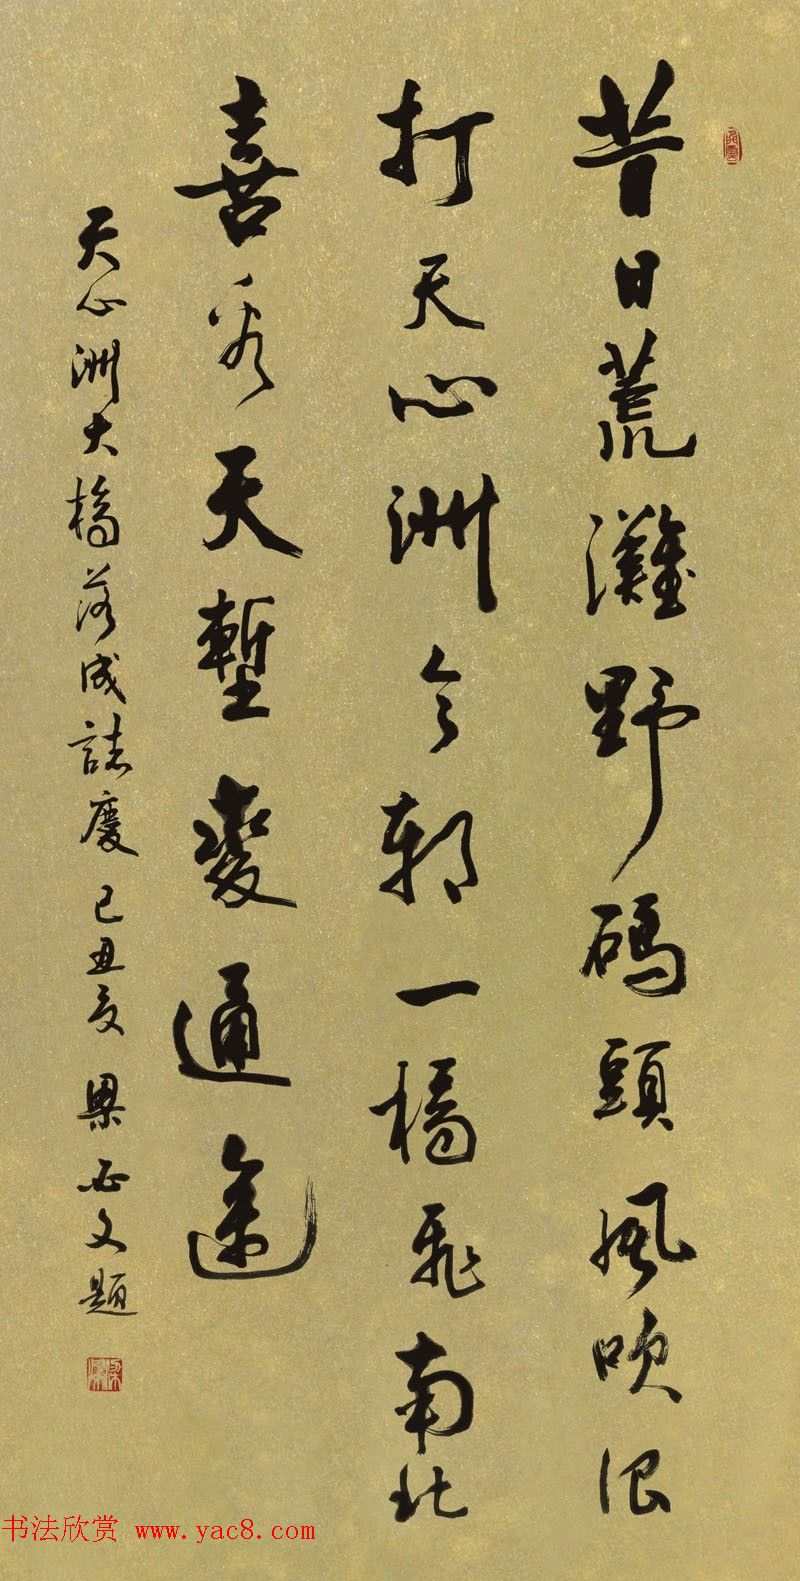 昔日荒灘野碼頭風吹浪
打天心洲今朝一橋飛南北
喜看天塹變通途
天心洲大橋落成誌慶己丑夏梁必文題
书法欣赏 www.yac8.com